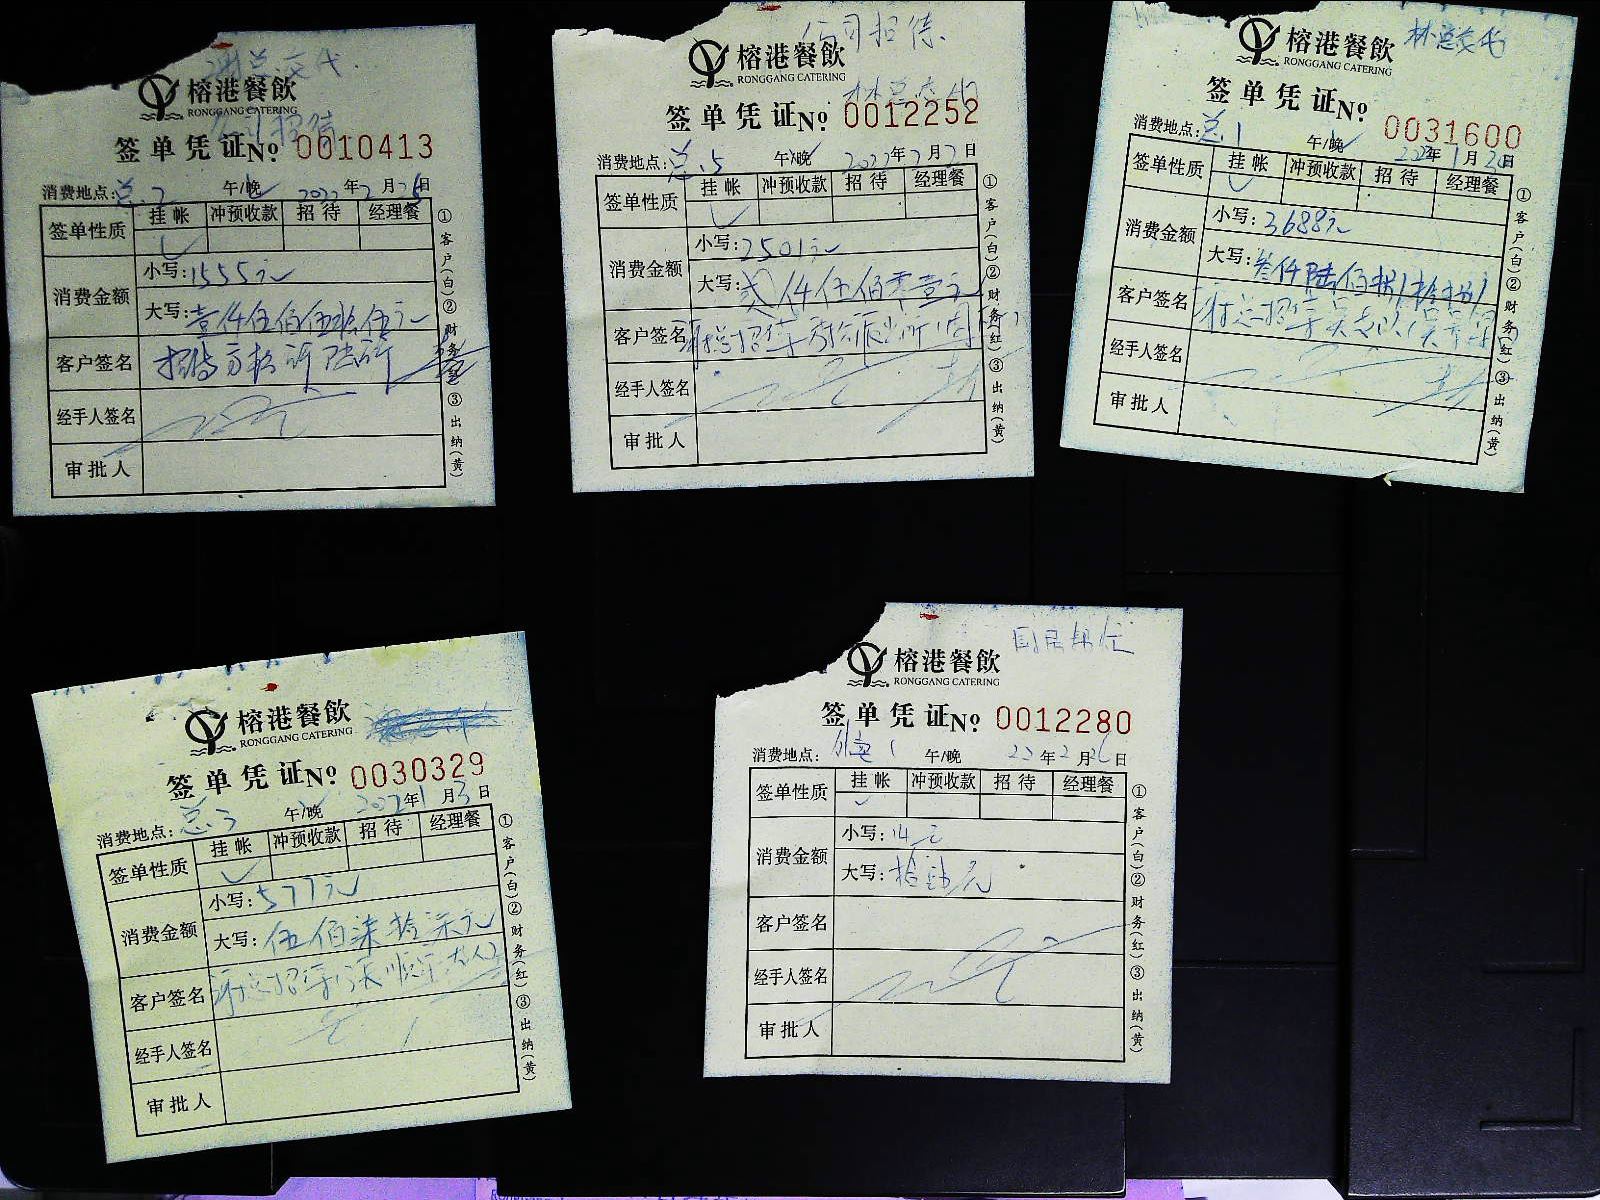 谢总交代
公司招待
榕港餐飲
RONGGANG CATERING
签单凭证№ 0010413
消费地点: 总2 午/晚 2022年2月26日
签单性质 挂帐 冲预收款 招待 经理餐
消费金额 小写:1555元
大写:壹仟伍佰伍拾伍元
客户签名 招待
经手人签名
审批人
①客户(白)②财务(红)③出纳(黄)
公司招待.
林总交代
榕港餐飲
RONGGANG CATERING
签单凭证№ 0012252
消费地点: 总5 午/晚 2022年2月2日
签单性质 挂帐 冲预收款 招待 经理餐
消费金额 小写:2501元
大写:贰仟伍佰零壹元
客户签名 谢总招待 派出所
经手人签名
审批人
①客户(白)②财务(红)③出纳(黄)
林总交代
榕港餐飲
RONGGANG CATERING
签单凭证№ 0031600
消费地点: 总1 午/晚 2022年1月20日
签单性质 挂帐 冲预收款 招待 经理餐
消费金额 小写:3688元
大写:叁仟陆佰捌拾捌
客户签名 谢总招待
经手人签名
审批人
①客户(白)②财务(红)③出纳(黄)
榕港餐飲
RONGGANG CATERING
签单凭证№ 0030329
消费地点: 总3 午/晚 2022年1月3日
签单性质 挂帐 冲预收款 招待 经理餐
消费金额 小写:577元
大写:伍佰柒拾柒元
客户签名 谢总招待
经手人签名
审批人
①客户(白)②财务(红)③出纳(黄)
榕港餐飲
RONGGANG CATERING
签单凭证№ 0012280
消费地点: 1 午/晚 22年2月26日
签单性质 挂帐 冲预收款 招待 经理餐
消费金额 小写:14元
大写:拾肆元
客户签名
经手人签名
审批人
①客户(白)②财务(红)③出纳(黄)